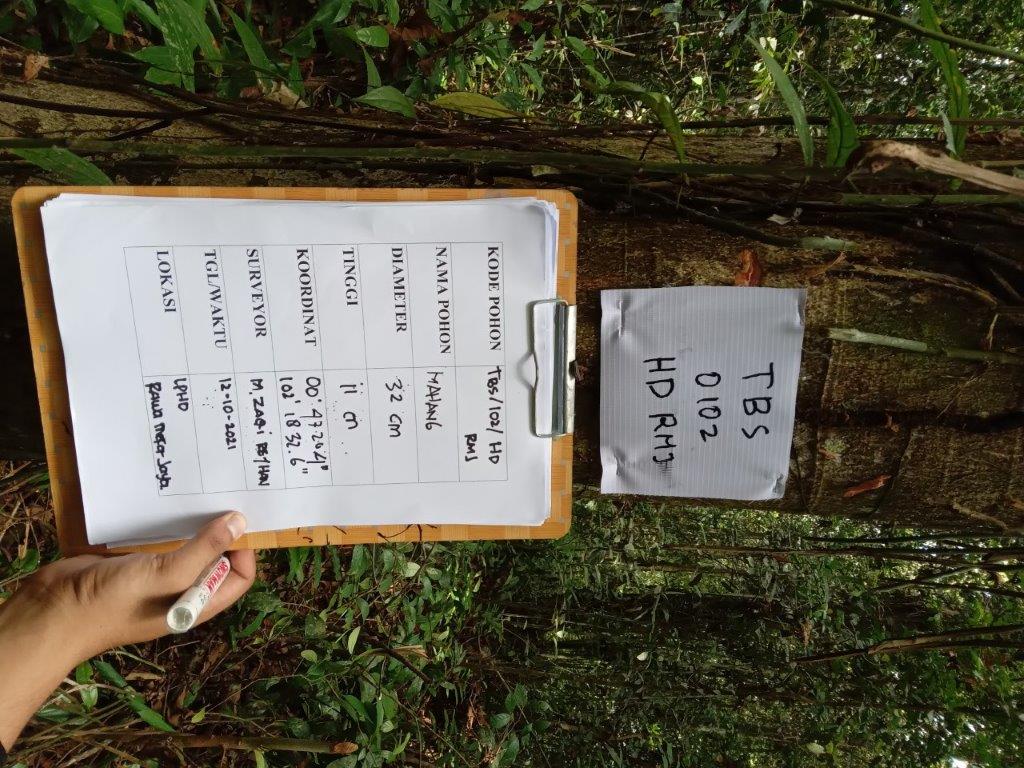 TBS
0102
HD RMJ
KODE POHON TBS/102/ HD
RMJ
NAMA POHON MAHANG
DIAMETER 32 cm
TINGGI 11 m
KOORDINAT 00° 47 26.4"
102° 18 32.6"
SURVEYOR M. ZAQI
TGL/WAKTU 12-10-2021
LOKASI LPHD
Rawa Mekar Jaya
SNOWMAN